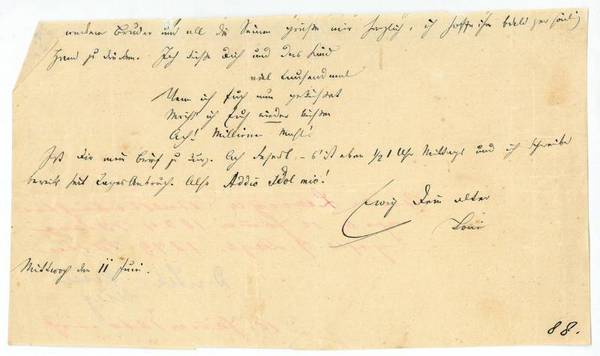 meinen Bruder und all die Seinen grüße mir herzlich, ich hoffe ihm bald
Hand zu drücken. Ich küsse Dich und das Kind
viel tausend mal
Wenn ich Euch nun geküsset
Möcht ich Euch wieder küssen
Ach! Millionen Mahl!
Ist Dir mein Brief zu Ach – s'ist eben ½ 1 Uhr Mittags und ich schreibe
bereits seit TagesAnbruch. Also Addio Idol mio!
Ewig Dein alter
Mittwoch den 11 Juni.
88.